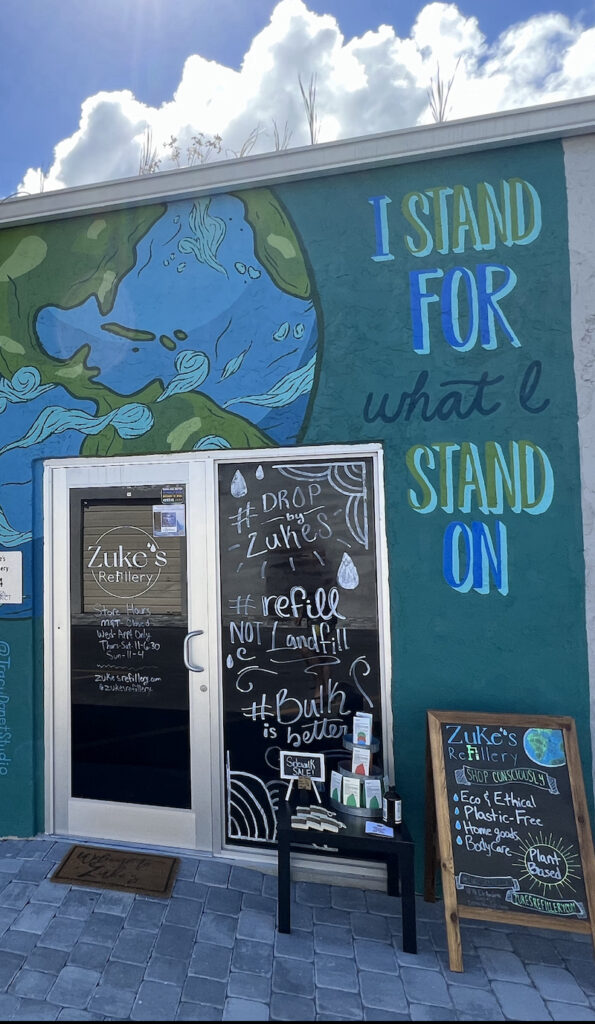 I STAND
FOR
what I
STAND
ON
Zuke's
Refillery
Store Hours
M&T-Closed
Wed-Appt Only
Thurs-Sat: 11-6:30
Sun-11-4
zukesrefillery.com
@zukesrefillery
#DROP
by
Zukes
#refill
NOT Landfill
#Bulk
is
better
Sidewalk
SALE!
ZUKE'S
REFILLERY
SHOP CONSCIOUSLY
Eco & Ethical
Plastic-Free
Home goods
BodyCare
Plant
Based
ZUKESREFILLERY.COM
Welcome to
Zuke's